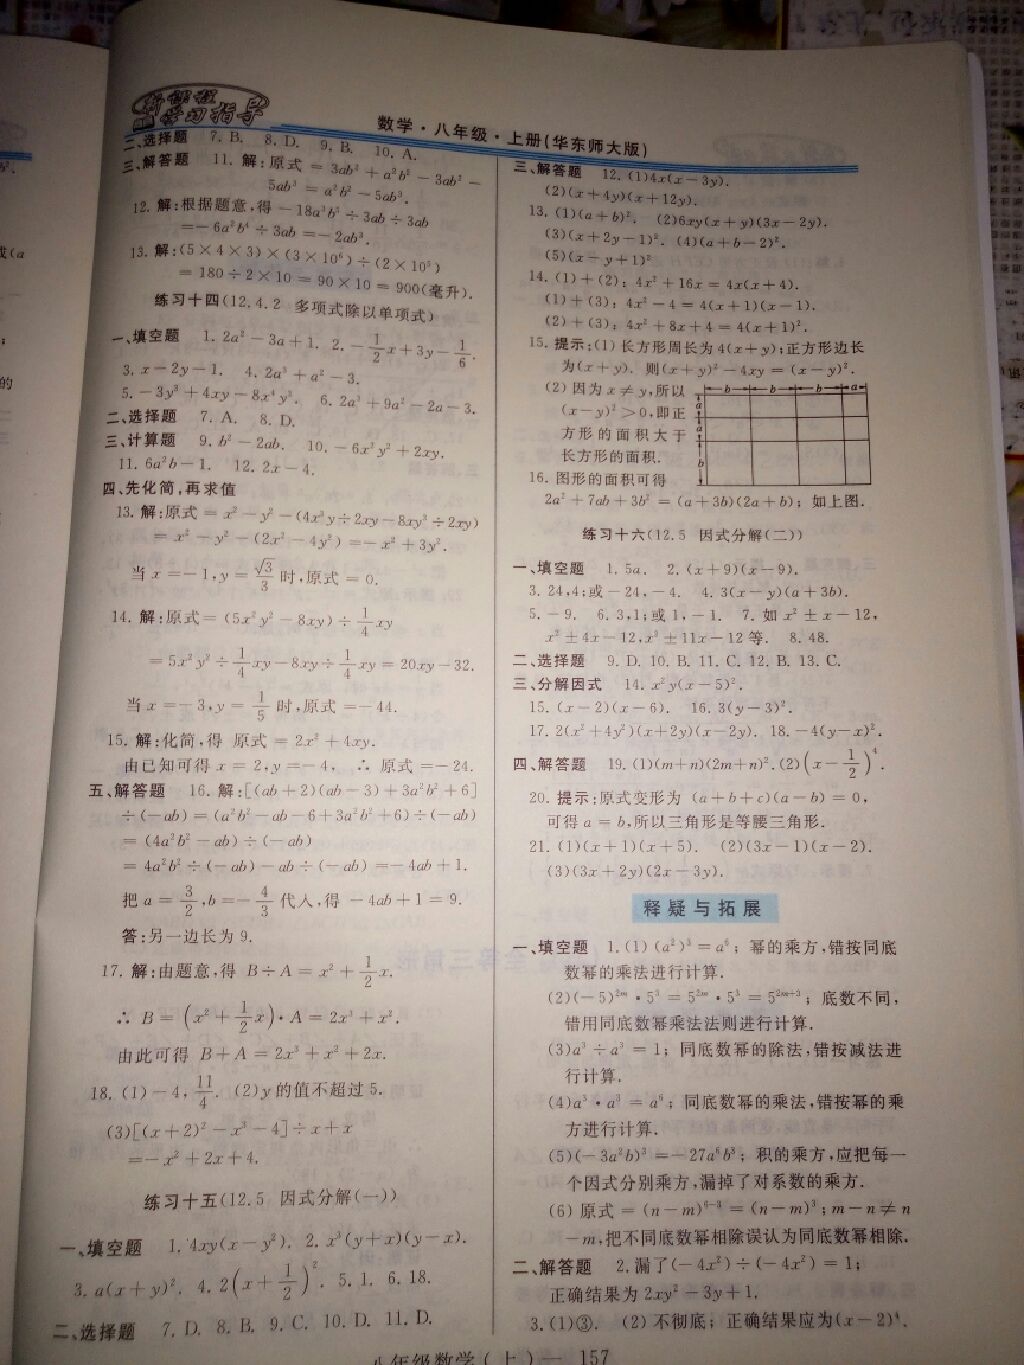 新课程
学习指导
数学·八年级·上册(华东师大版)
二、选择题 7. B. 8. D. 9. B. 10. A.
三、解答题 11. 解:原式 = 3ab² + a²b² - 3ab² -
5ab³ = a²b² - 5ab³.
12. 解:根据题意,得 -18a³b⁵ ÷ 3ab ÷ 3ab
= -6a²b⁴ ÷ 3ab = -2ab³.
13. 解:(5 × 4 × 3) × (3 × 10⁶) ÷ (2 × 10⁵)
= 180 ÷ 2 × 10 = 90 × 10 = 900(毫升).
练习十四(12.4.2 多项式除以单项式)
一、填空题 1. 2a² - 3a + 1. 2. -1/2x + 3y - 1/6.
3. x - 2y - 1. 4. 2a³ + a² - 3.
5. -3y³ + 4xy - 8x⁴y³. 6. 2a³ + 9a² - 2a - 3.
二、选择题 7. A. 8. D.
三、计算题 9. b² - 2ab. 10. -6x²y² + 2xy.
11. 6a²b - 1. 12. 2x - 4.
四、先化简,再求值
13. 解:原式 = x² - y² - (4x³y ÷ 2xy - 8xy³ ÷ 2xy)
= x² - y² - (2x² - 4y²) = -x² + 3y².
当 x = -1, y = √3/3 时,原式 = 0.
14. 解:原式 = (5x²y² - 8xy) ÷ 1/4xy
= 5x²y² ÷ 1/4xy - 8xy ÷ 1/4xy = 20xy - 32.
当 x = -3, y = 1/5 时,原式 = -44.
15. 解:化简,得 原式 = 2x² + 4xy.
由已知可得 x = 2, y = -4, ∴ 原式 = -24.
五、解答题 16. 解:[(ab + 2)(ab - 3) + 3a²b² + 6]
÷ (-ab) = (a²b² - ab - 6 + 3a²b² + 6) ÷ (-ab)
= (4a²b² - ab) ÷ (-ab)
= 4a²b² ÷ (-ab) - ab ÷ (-ab) = -4ab + 1.
把 a = 3/2, b = -4/3 代入,得 -4ab + 1 = 9.
答:另一边长为 9.
17. 解:由题意,得 B ÷ A = x² + 1/2x.
∴ B = (x² + 1/2x)·A = 2x³ + x².
由此可得 B + A = 2x³ + x² + 2x.
18. (1) -4, 11/4. (2) y 的值不超过 5.
(3)[(x + 2)² - x³ - 4] ÷ x + x
= -x² + 2x + 4.
练习十五(12.5 因式分解(一))
一、填空题 1. 4xy(x - y²). 2. x³(y + x)(y - x).
3. a(x + y)². 4. 2(x + 1/2)². 5. 1. 6. 18.
二、选择题 7. D. 8. B. 9. C. 10. D. 11. D.
三、解答题 12. (1)4x(x - 3y).
(2)(x + 4y)(x + 12y).
13. (1)(a + b)². (2)6xy(x + y)(3x - 2y).
(3)(x + 2y - 1)². (4)(a + b - 2)².
(5)(x - y + 1)²
14. (1) + (2): 4x² + 16x = 4x(x + 4).
(1) + (3): 4x² - 4 = 4(x + 1)(x - 1).
(2) + (3): 4x² + 8x + 4 = 4(x + 1)².
15. 提示:(1) 长方形周长为 4(x + y);正方形边长
为(x + y). 则(x + y)² - 4xy = (x - y)².
(2) 因为 x ≠ y,所以
(x - y)² > 0,即正
方形的面积大于
长方形的面积.
b b b a
a
a
b
16. 图形的面积可得
2a² + 7ab + 3b² = (a + 3b)(2a + b);如上图.
练习十六(12.5 因式分解(二))
一、填空题 1. 5a. 2. (x + 9)(x - 9).
3. 24,4;或 -24, -4. 4. 3(x - y)(a + 3b).
5. -9. 6. 3,1;或 1, -1. 7. 如 x² ± x - 12,
x² ± 4x - 12, x² ± 11x - 12 等. 8. 48.
二、选择题 9. D. 10. B. 11. C. 12. B. 13. C.
三、分解因式 14. x²y(x - 5)².
15. (x - 2)(x - 6). 16. 3(y - 3)².
17. 2(x² + 4y²)(x + 2y)(x - 2y). 18. -4(y - x)².
四、解答题 19. (1)(m + n)(2m + n)². (2)(x - 1/2)⁴.
20. 提示:原式变形为 (a + b + c)(a - b) = 0,
可得 a = b,所以三角形是等腰三角形.
21. (1)(x + 1)(x + 5). (2)(3x - 1)(x - 2).
(3)(3x + 2y)(2x - 3y).
释疑与拓展
一、填空题 1. (1) (a²)³ = a⁶; 幂的乘方,错按同底
数幂的乘法进行计算.
(2)(-5)²ᵐ·5³ = 5²ᵐ·5³ = 5²ᵐ⁺³; 底数不同,
错用同底数幂乘法法则进行计算.
(3)a³ ÷ a³ = 1; 同底数幂的除法,错按减法进
行计算.
(4)a³·a³ = a⁶; 同底数幂的乘法,错按幂的乘
方进行计算.
(5)(-3a²b)³ = -27a⁶b³; 积的乘方,应把每一
个因式分别乘方,漏掉了对系数的乘方.
(6) 原式 = (n - m)⁶⁻³ = (n - m)³; m - n ≠ n
- m,把不同底数幂相除误认为同底数幂相除.
二、解答题 2. 漏了(-4x²) ÷ (-4x²) = 1;
正确结果为 2xy² - 3y + 1.
3. (1)③. (2) 不彻底; 正确结果应为(x - 2)⁴.
八年级数学(上) — 157